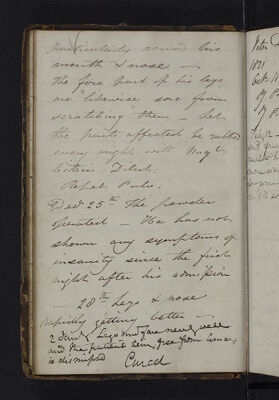 particularly round his
mouth & nose —
The fore part of his legs
are likewise sore from
scratching them — Let
the parts affected be rubbed
every night with Ungt
Citrin Dilut:
Repet Pulv:
Decr 25th The powder
operated — He has not
shown any symptoms of
insanity since the first
night after his admission
28th Legs & nose
Rapidly getting better —
2 Jany Legs and face nearly well
and the patient being free from
is dismissed Cured
Peter
1821
Octr